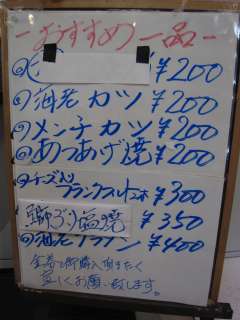 ーおすすめ一品ー
¥200
海老カツ ¥200
メンチカツ ¥200
あつあげ焼 ¥200
チーズ入り
フランクフルト2本 ¥300
鰤ぶり塩焼 ¥350
海老フライ ¥400
御購入頂きたく
宜しくお願い致します。